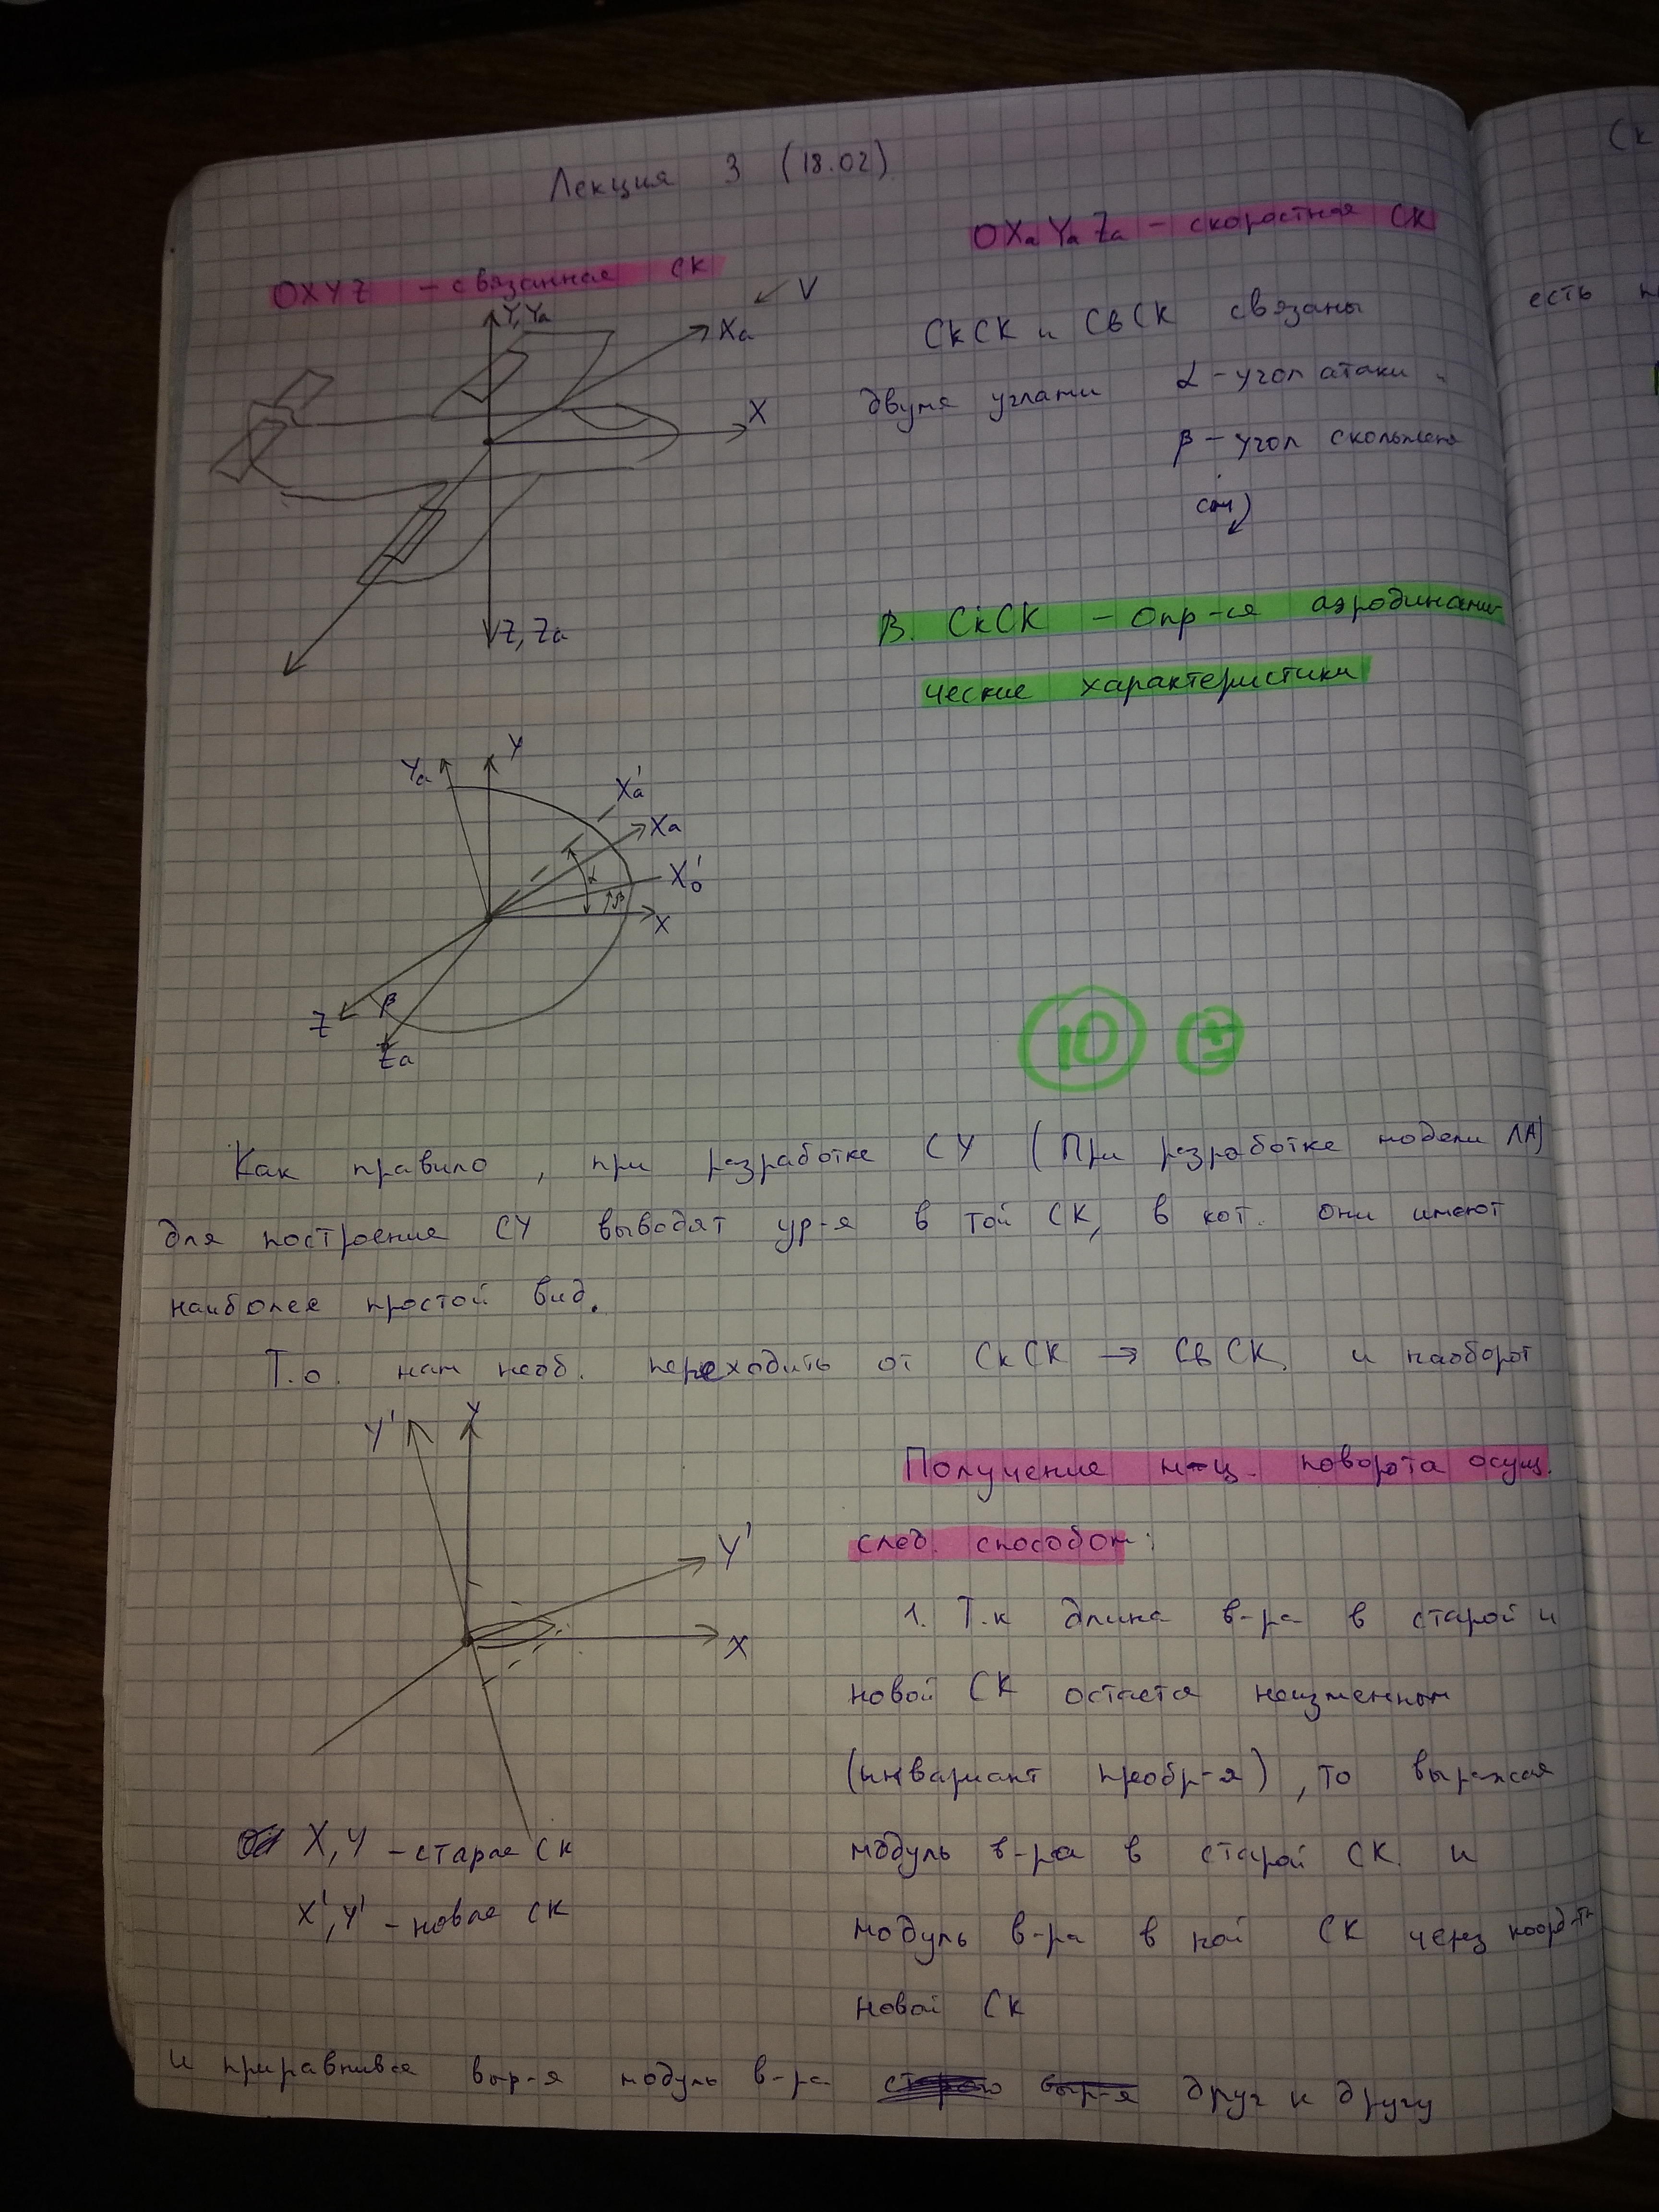 Лекция 3 (18.02)
OXYZ - связанная СК
OXaYaZa - скоростная СК
V
Y, Ya
Xa
X
Z, Za
СкСК и СвСК связаны
двумя углами α - угол атаки
β - угол скольжения
см
В. СкСК - опр-ся аэродинами-
ческие характеристики
Ya
Y
Xa'
Xa
X0'
α
β
X
Z
β
Za
10
Как правило, при разработке СУ (При разработке модели ЛА)
для построения СУ выводят ур-я в той СК, в кот. они имеют
наиболее простой вид.
Т.о. нам необ. переходить от СкСК → СвСК и наоборот
Y'
Y
Y'
X
X, Y - старая СК
X', Y' - новая СК
Получение м-ц. поворота осущ.
след. способом:
1. Т.к длина в-ра в старой и
новой СК остается неизменным
(инвариант преобр-я), то выражая
модуль в-ра в старой СК и
модуль в-ра в ной СК через коорд-ты
новой СК
и приравнивая выр-я модуль в-ра друг к другу
(Ск
есть